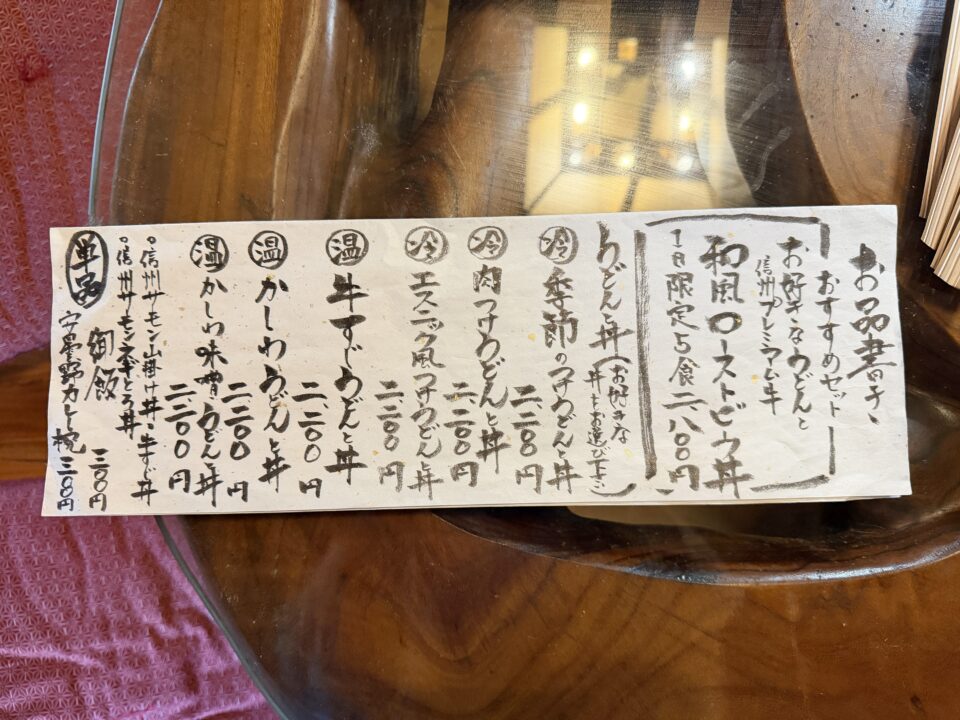 お品書き
おすすめセット
お好きなうどんと
信州プレミアム牛
和風ローストビーフ丼
1日限定5食 二、八〇〇円
うどんと丼(お好きな
丼をお選び下さい)
冷 季節のつけうどんと丼
二、二〇〇円
冷 肉つけうどんと丼
二、二〇〇円
冷 エスニック風つけうどんと丼
二、二〇〇円
温 牛すじうどんと丼
二、二〇〇円
温 かしわうどんと丼
二、二〇〇円
温 かしわ味噌うどんと丼
二、二〇〇円
。信州サーモン山掛け丼・牛すじ丼
。信州サーモンネギとろ丼
単品
御飯 三〇〇円
安曇野カレー椀 三〇〇円